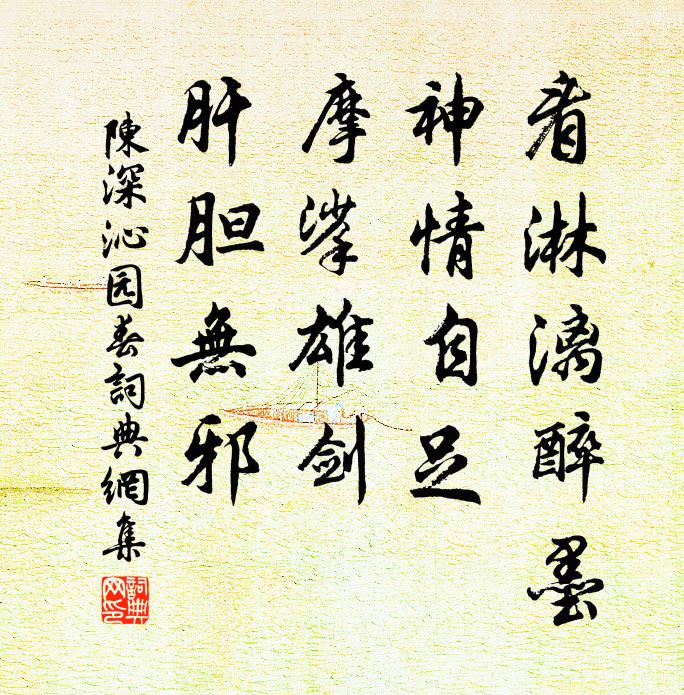 看淋漓醉墨
神情自足
摩挲雄剑
肝胆無邪
陳深沁园春詞典網集
詞典網印